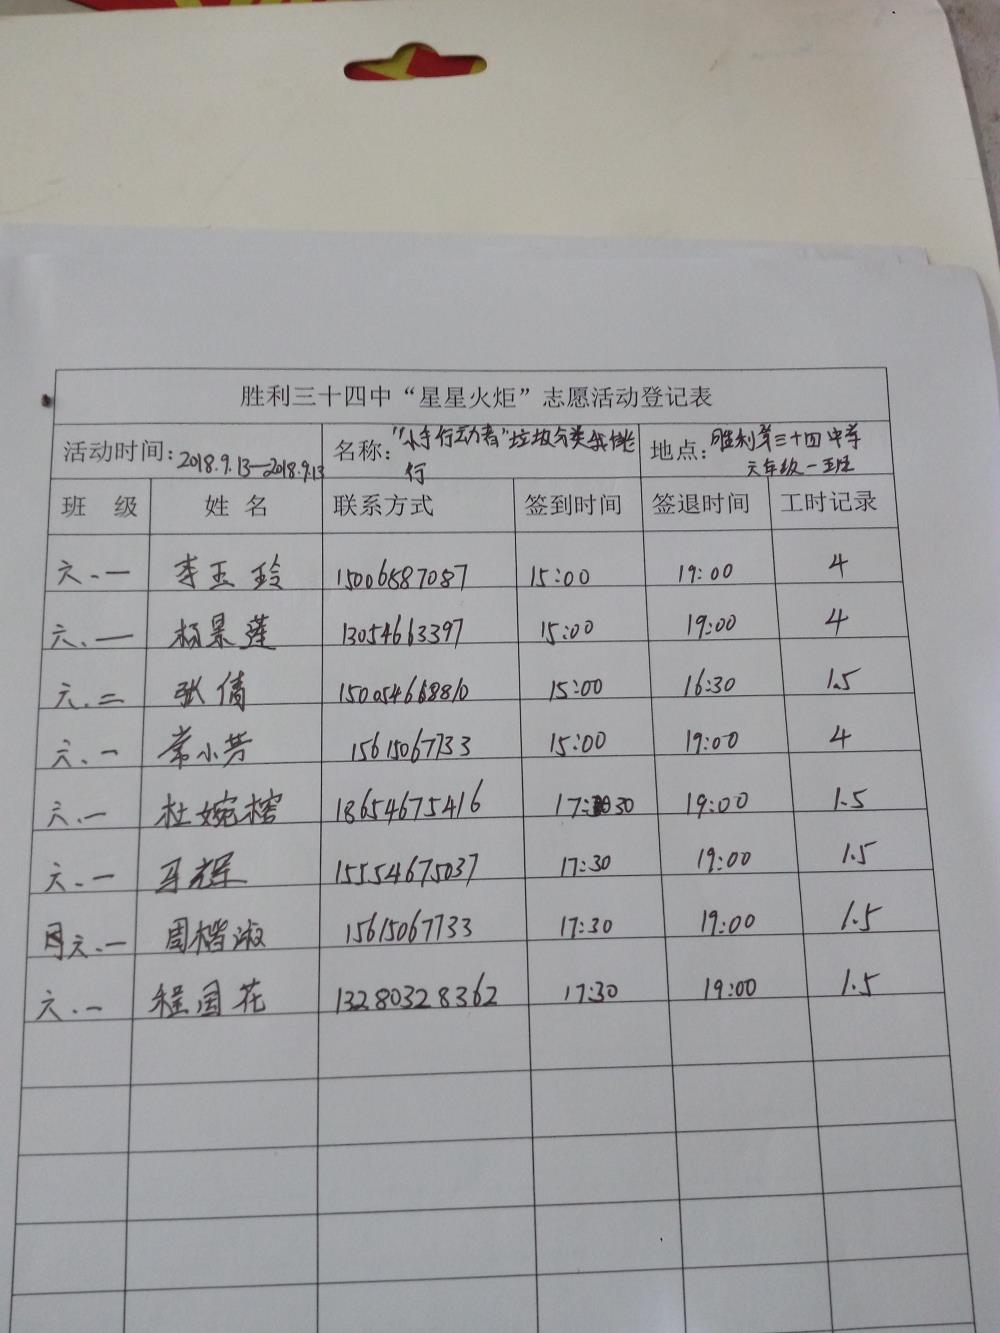 胜利三十四中“星星火炬”志愿活动登记表
活动时间:2018.9.13—2018.9.13 名称:“小手行动者”垃圾分类我能行 地点:胜利第三十四中学六年级一班
班 级 姓 名 联系方式 签到时间 签退时间 工时记录
六.一 李玉玲 15006887087 15:00 19:00 4
六.一 杨景莲 13054663397 15:00 19:00 4
六.二 张倩 15005466880 15:00 16:30 1.5
六.一 常小芳 15615067733 15:00 19:00 4
六.一 杜婉榕 18654675416 17:30 19:00 1.5
六.一 马辉 15554675037 17:30 19:00 1.5
六.一 周楷淑 15615067733 17:30 19:00 1.5
六.一 程国花 13280328362 17:30 19:00 1.5